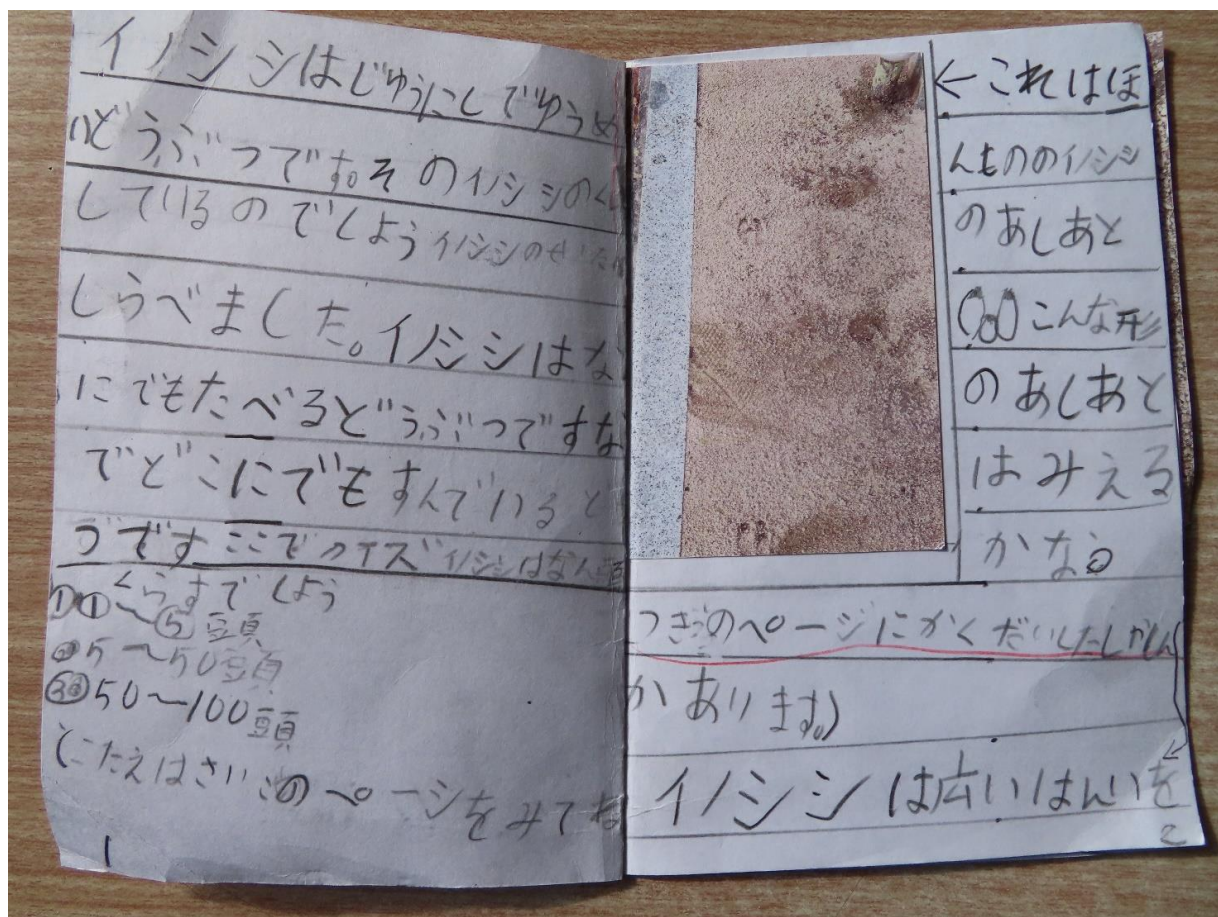 イノシシはじゅうにしでゆうめ
いどうぶつです。そのイノシシのく
しているのでしよう イノシシのせいたい
しらべました。イノシシはな
にでもたべるどうぶつですな
でどこにでもすんでいると
づです ここでクイズ イノシシはなん頭
くらすでしよう
①①〜⑤頭
②5〜50頭
③50〜100頭
(こたえはさいごのページをみてね
1
←これはほ
んもののイノシシ
のあしあと
こんな形
のあしあと
はみえる
かな。
つぎのページにかくだいしたしゃしん
があります。)
イノシシは広いはんいを
2